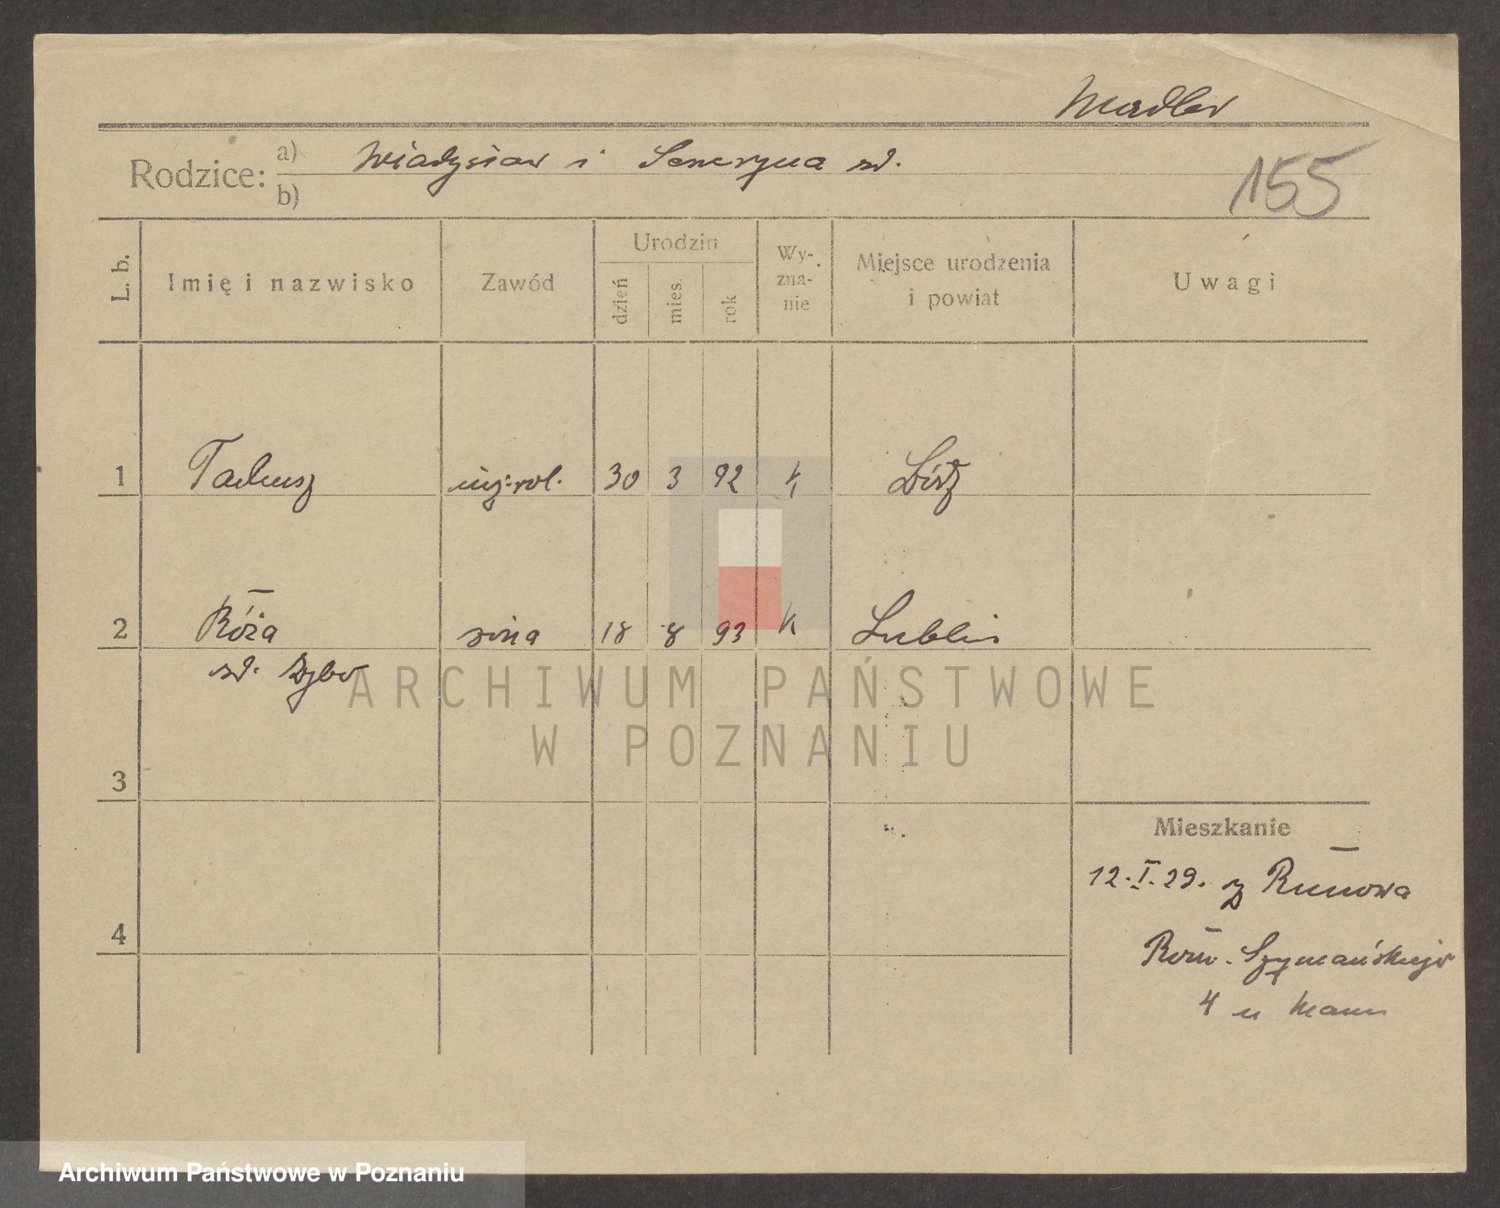 Madler
Rodzice: a) Władysław i Seweryna zd.
b)
155
L. b.
Imię i nazwisko
Zawód
Urodzin
dzień
mies.
rok
Wy-
zna-
nie
Miejsce urodzenia
i powiat
Uwagi
1 Tadeusz inż. rol. 30 3 92 K Łódź
2 Róża żona 18 8 93 K Lublin
zd.
3
4
Mieszkanie
12.I.29. z Runowa
Szymańskiego
4 u Mann
ARCHIWUM PAŃSTWOWE
W POZNANIU
Archiwum Państwowe w Poznaniu